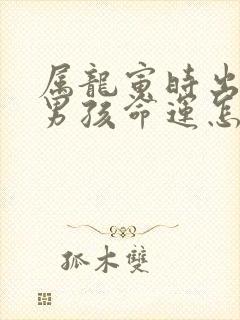 属龍寅時出
男孩命運怎
孤木雙